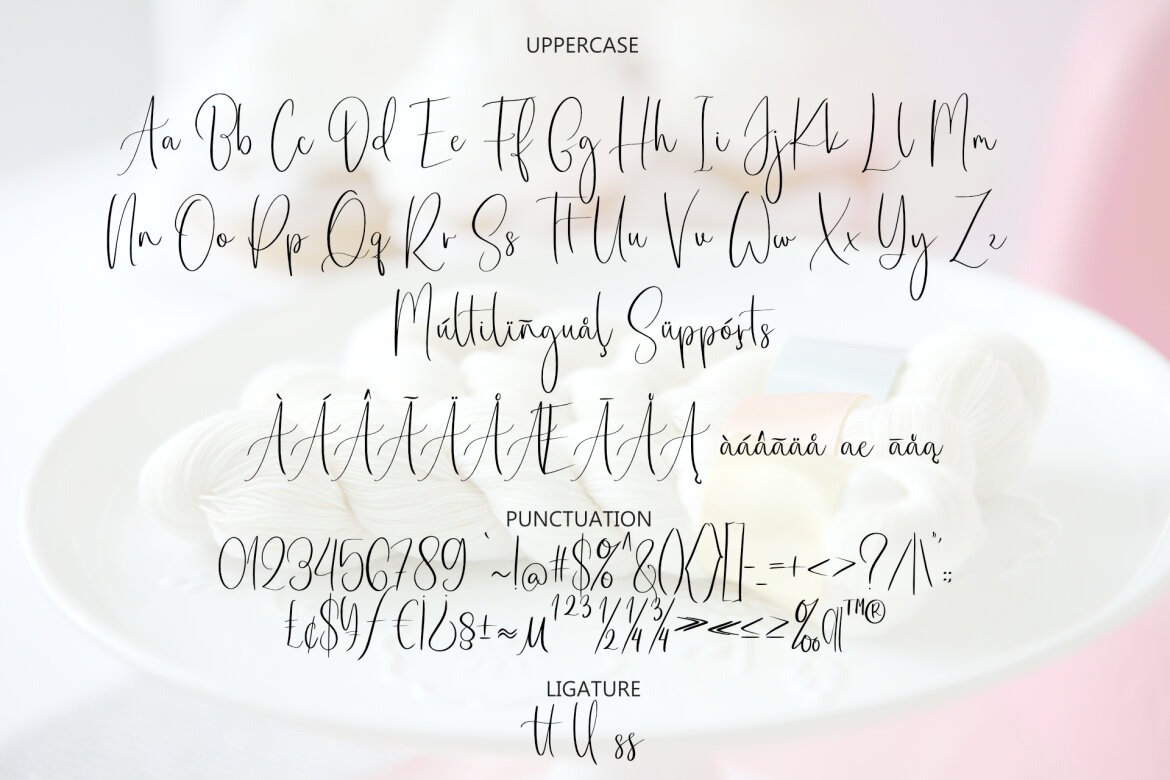 UPPERCASE
Aa Bb Cc Dd Ee Ff Gg Hh Ii Jj Kk Ll Mm
Nn Oo Pp Qq Rr Ss Tt Uu Vv Ww Xx Yy Zz
Múltilïñguåļ Süppóŗts
ÀÁÂÃÄÅÆĀÅĄ àáâãäå ae āåą
PUNCTUATION
0123456789 `~!@#$%^&(){}[]-_=+<>?/|\"':;
£¢$¥ƒ€¡¿§±≈µ¹²³½¼¾»«≤≥‰¶™®
LIGATURE
tt ll ss